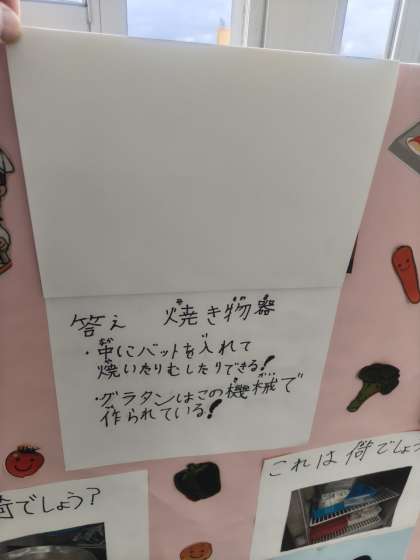 答え 焼き物器
・中にバットを入れて
焼いたりむしたりできる!
・グラタンはこの機械で
作られている!
何でしょう?
これは何でしょ